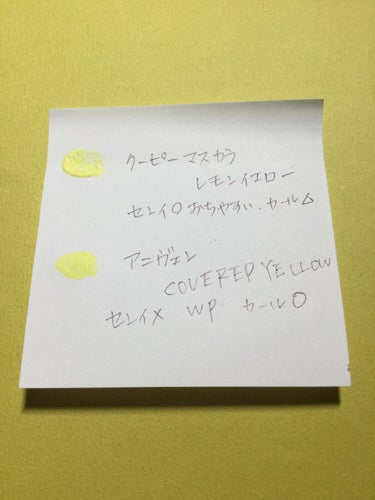 クーピーマスカラ
レモンイエロー
センイ〇おちやすい.カール△
アニヴェン
COVERED YELLOW
センイ× WP カール〇